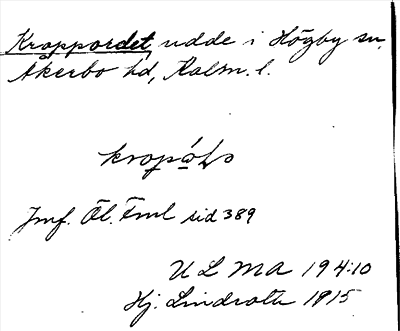 Kroppordet, udde i Högby sn,
Åkerbo hd, Kalm. l.
Jmf. Öl. Fml sid 389
ULMA 194:10
Hj. Lindroth 1915